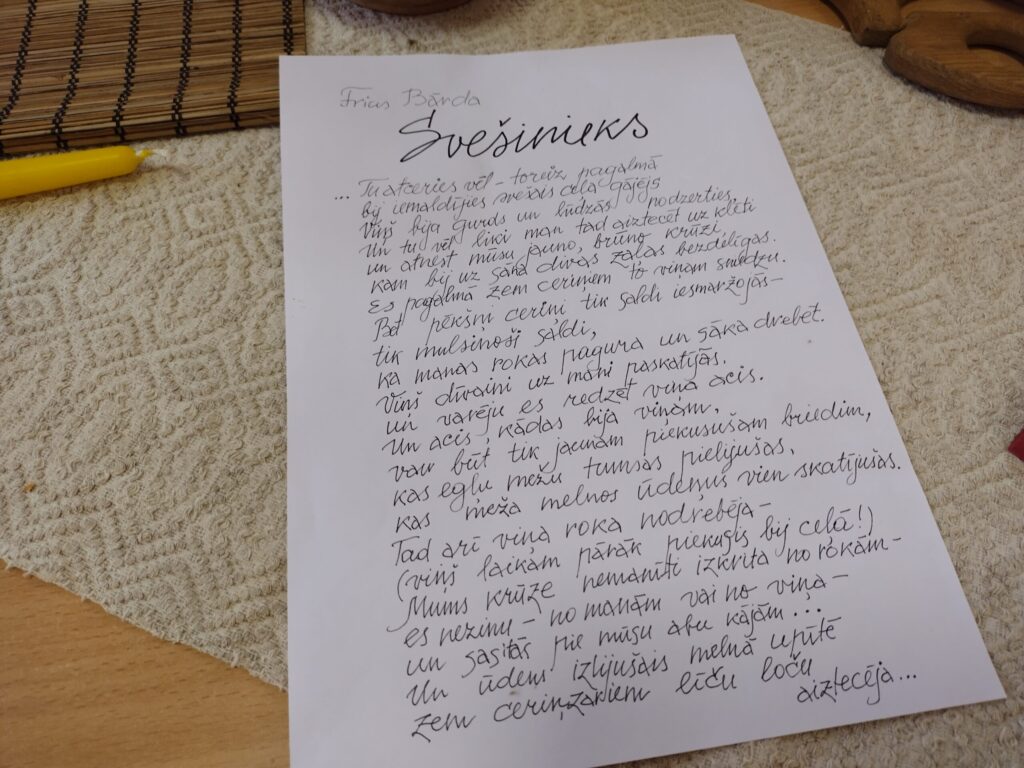 Fricis Bārda
Svešinieks
... Tu atceries vēl – toreiz pagalmā
bij iemaldījies svešais ceļa gājējs
Viņš bija gurds un lūdzās nodzerties,
Un tu vēl liki man tad aiztecēt uz klēti
un atnest mūsu jauno, brūno krūzi,
kam bij uz sāna divas zaļas bezdelīgas.
Es pagalmā zem ceriņiem to viņam sniedzu.
Bet pēkšņi ceriņi tik saldi iesmaržojās –
tik mulsinoši saldi,
ka manas rokas pagura un sāka drebēt.
Viņš dīvaini uz mani paskatījās.
un varēju es redzēt viņa acis.
Un acis, kādas bija viņam,
var būt tik jaunam piekusušam briedim,
kas egļu mežu tumsas pielijušas,
kas meža melnos ūdeņus vien skatījušas.
Tad arī viņa roka nodrebēja –
(viņš laikam pārāk piekusis bij ceļā!)
Mums krūze nemanīti izkrita no rokām –
es nezinu – no manām vai no viņa –
un sasitās pie mūsu abu kājām...
Un ūdens izlijušais melnā upītē
zem ceriņzariem līču loču
aiztecēja...